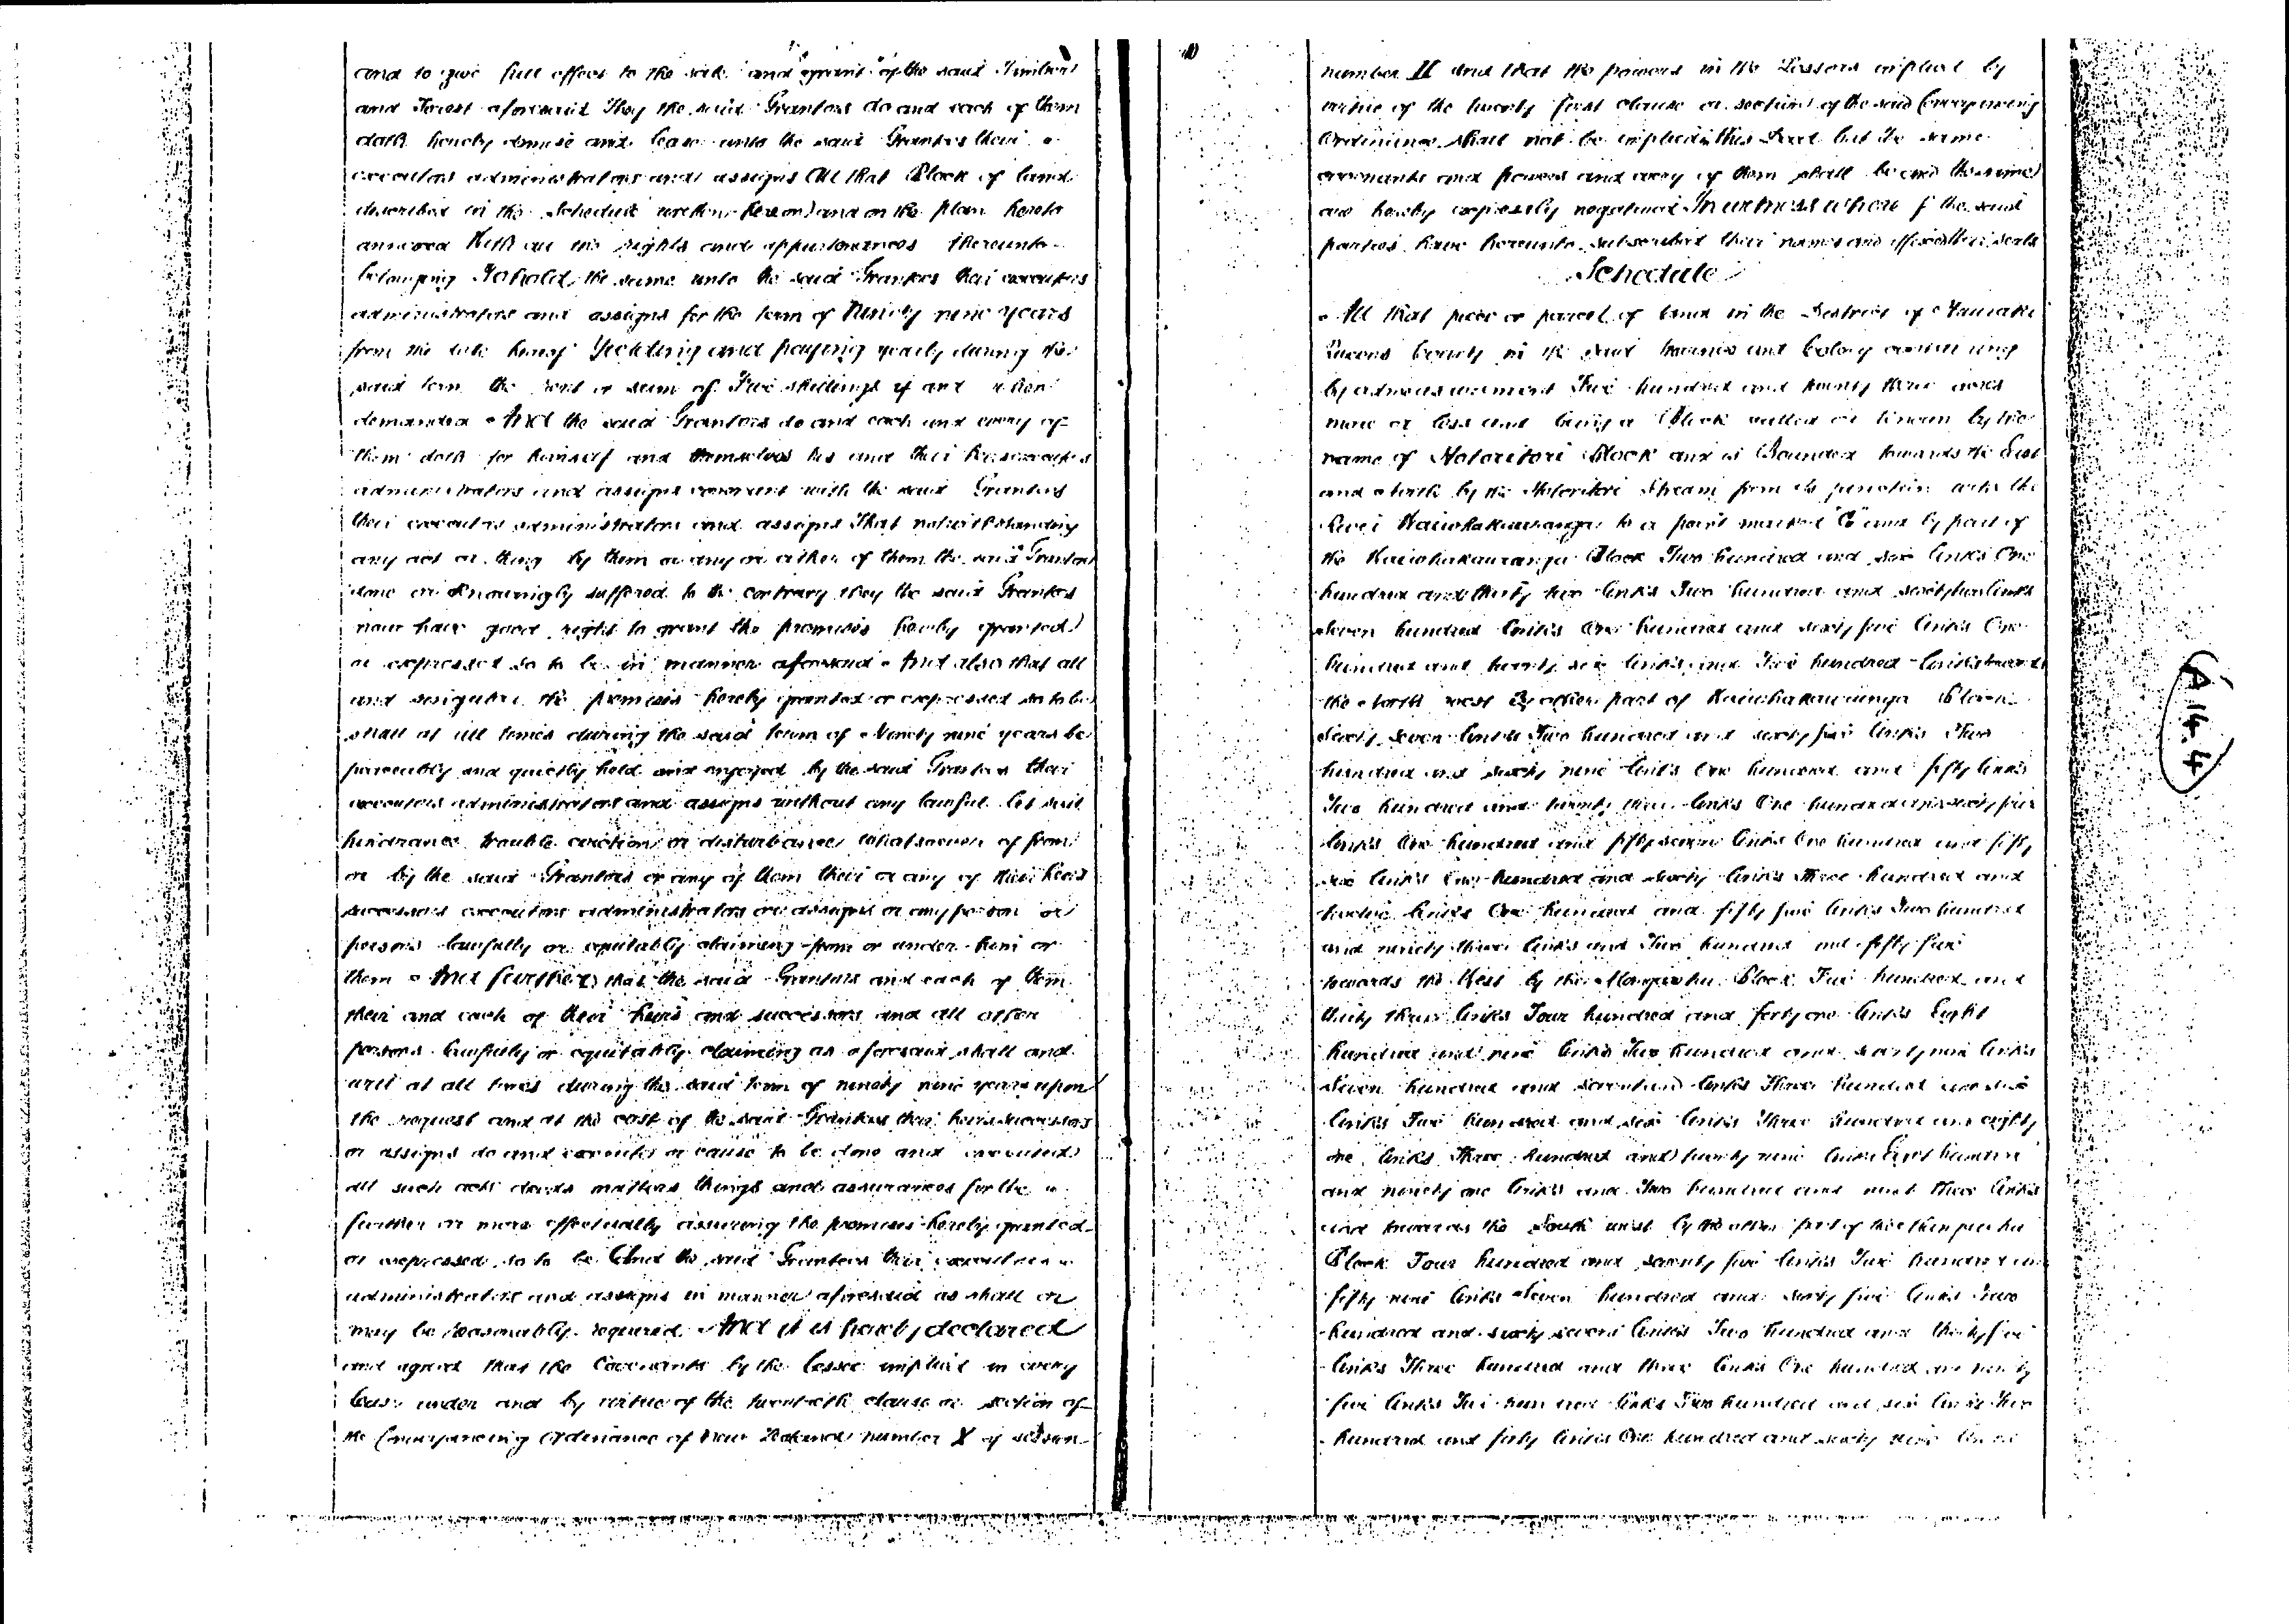 and to give full effect to the sale and grant of the said Timber
and Forest aforesaid They the said Grantors do and each of them
doth hereby demise and lease unto the said Grantees their
executors administrators and assigns All that Block of land
described in the Schedule written hereon and on the plan hereto
annexed With all the rights and appurtenances thereunto
belonging To hold the same unto the said Grantees their executors
administrators and assigns for the term of Ninety nine years
from the date hereof Yielding and paying yearly during the
said term the rent or sum of Five shillings if and when
demanded And the said Grantors do and each and every of
them doth for himself and themselves his and their heirs executors
administrators and assigns covenant with the said Grantees
their executors administrators and assigns That notwithstanding
any act or thing by them or any or either of them the said Grantors
done or knowingly suffered to the contrary they the said Grantors
now have good right to grant the premises hereby granted
or expressed so to be in manner aforesaid And also that all
and singular the premises hereby granted or expressed so to be
shall at all times during the said term of Ninety nine years be
peaceably and quietly held and enjoyed by the said Grantees their
executors administrators and assigns without any lawful let suit
hindrance trouble eviction or disturbance whatsoever of from
or by the said Grantors or any of them their or any of their heirs
successors executors administrators or assigns or any person or
persons lawfully or equitably claiming from or under him or
them And further that the said Grantors and each of them
their and each of their heirs and successors and all other
persons lawfully or equitably claiming as aforesaid shall and
will at all times during the said term of ninety nine years upon
the request and at the cost of the said Grantees their heirs successors
or assigns do and execute or cause to be done and executed
all such acts deeds matters things and assurances for the
further or more effectually assuring the premises hereby granted
or expressed so to be And the said Grantees their executors
administrators and assigns in manner aforesaid as shall or
may be reasonably required And it is hereby declared
and agreed that the Covenants by the lessee implied in every
lease under and by virtue of the twentieth clause or section of
the Conveyancing Ordinance of New Zealand number X of session
number II and that the powers in the Lessors implied by
virtue of the twenty first clause or section of the said Conveyancing
Ordinance shall not be implied in this Deed but the same
covenants and powers and every of them shall be and the same
are hereby expressly negatived In witness whereof the said
parties have hereunto subscribed their names and affixed their seals
Schedule
All that piece or parcel of land in the District of Hauraki
Queens County in the said Province and Colony containing
by admeasurement Five hundred and twenty three acres
more or less and being a Block called or known by the
name of Hotoritori Block and is Bounded towards the East
and North by the Hotoritori Stream from its junction with the
River Kaiwhakauranga to a point marked C and by part of
the Kaiwhakauranga Block Two hundred and six links One
hundred and thirty two links Two hundred and sixty two links
Seven hundred links One hundred and sixty five links One
hundred and twenty six links and Two hundred links towards
the North west By other part of Kaiwhakauranga Block
Sixty seven links Two hundred and sixty five links Two
hundred and sixty nine links One hundred and fifty links
Two hundred and twenty three links One hundred and sixty five
links One hundred and fifty seven links One hundred and fifty
six links One hundred and sixty links Three hundred and
twelve links One hundred and fifty five links Two hundred
and ninety three links and Two hundred and fifty five
towards the West by the Block Five hundred and
thirty three links Four hundred and forty one links Eight
hundred and nine links Two hundred and links
Seven hundred and seventeen links Three hundred and six
links Two hundred and six links Three hundred and eighty
one links Three hundred and twenty nine links Eight hundred
and ninety one links and Two hundred and three links
and towards the South west by the other part of the
Block Four hundred and seventy five links Five hundred and
fifty nine links Seven hundred and sixty five links Two
hundred and sixty seven links Two hundred and thirty five
links Three hundred and three links One hundred and ninety
five links hundred links Two hundred and six links Two
hundred and forty links One hundred and sixty nine links
A 14.4